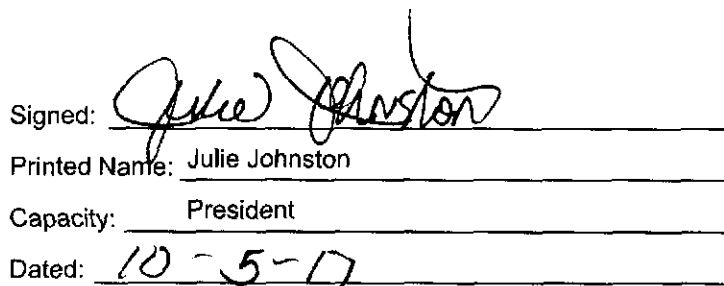 Signed: Julie Johnston
Printed Name: Julie Johnston
Capacity: President
Dated: 10-5-17